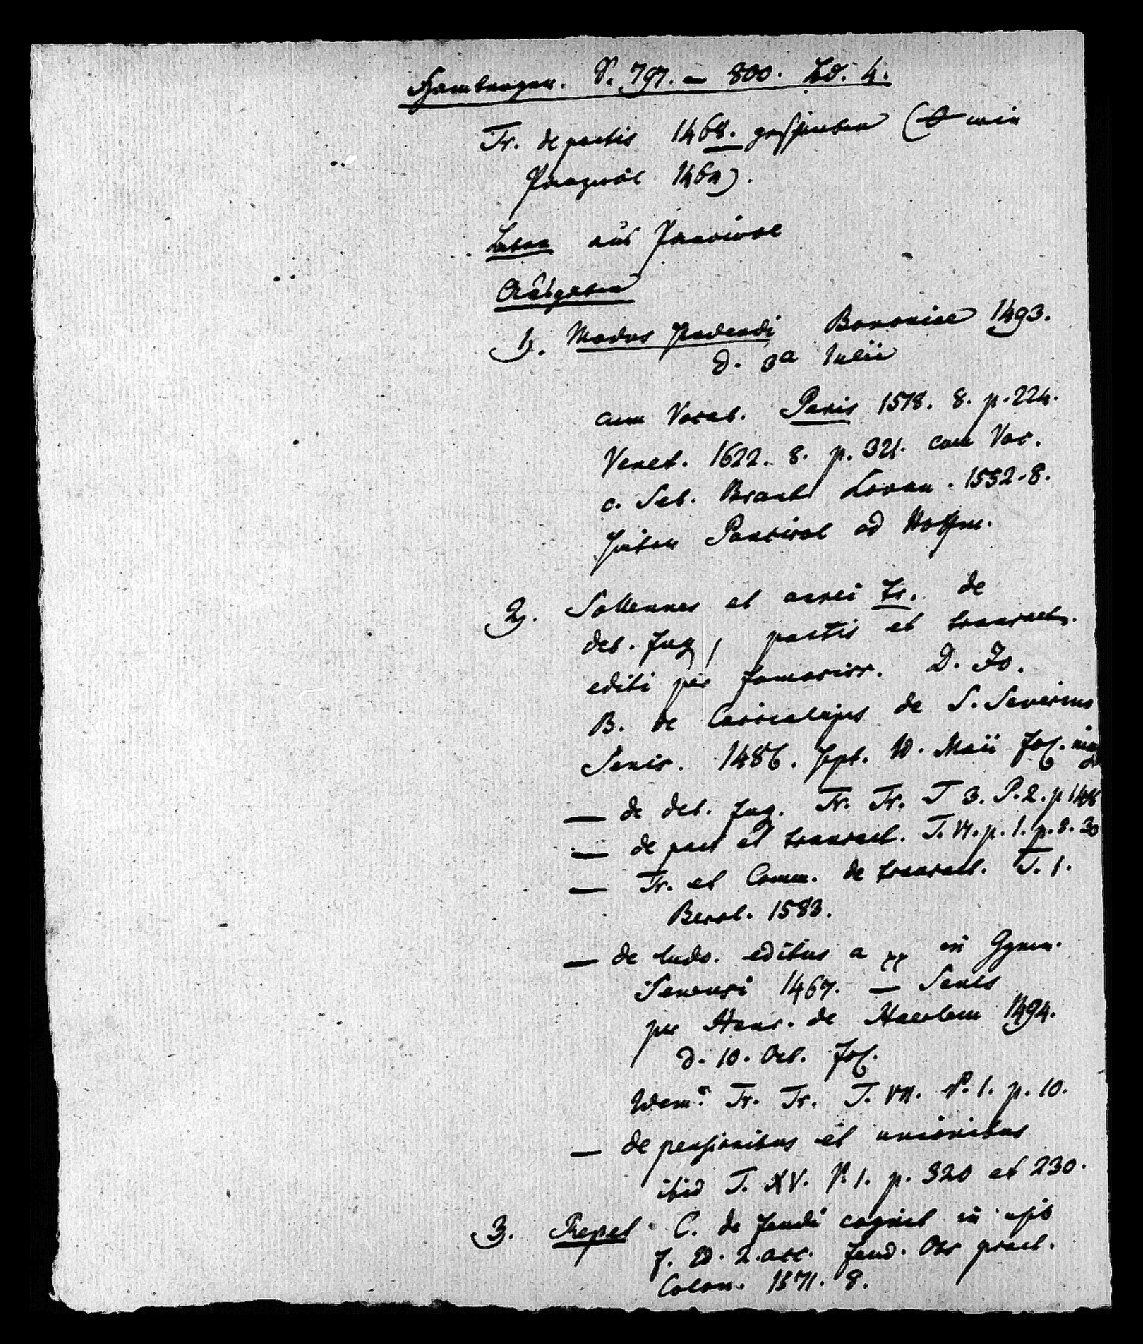 Hamberger. S. 797. – 800. Bd. 4.
Tr. de pactis 1468. geschrieben ( wie
Panzirol 1464).
Leben aus Pancirol
Ausgaben
1). Modus studendi Bononiae 1493.
d. 3a Iulii
cum Vocab. Paris 1518. 8. p. 224.
Venet. 1622. 8. p. 321. cum Voc.
c. Seb. Brant Lovan. 1552. 8.
Pancirol ed Hoffm.
2). Sollennes et aurei Tr. de
deb. fug, pactis et transact.
editi per famosiss. D. Io.
B. de de S. Severino
Senis. 1486. Maii fol.
— de deb. fug. Tr. Tr. T 3. P. 2. p
— de pact et transact. T. VI. p. 1. p. 8. 30
— Tr. et Comm. de transact. T. 1.
Berol. 1583.
— de ludo. editus a in Gymn.
Senensi 1467. — Senis
per Henr. de Haerlem 1494.
d. 10. Oct. fol.
Idem Tr. Tr. T. VII. P. 1. p. 10.
— de pensionibus et unionibus
ibid T. XV. P. 1. p. 320 et 230.
3). Repet C. de feudi cognit in
f. feud.
Colon. 1571. 8.